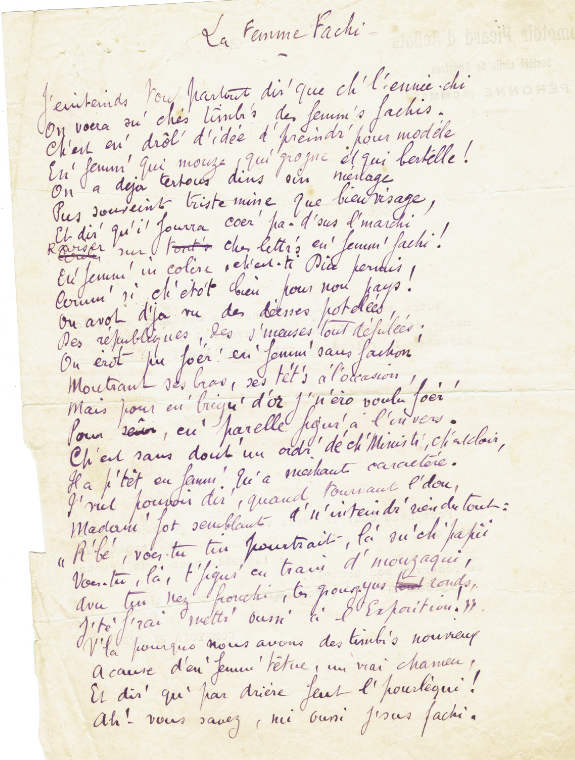 La Femme Fachi
J'einteinds tout partout dir' que ch' l'ennée-chi
On voera su' ches timb's des femm's fachis.
Ch'est en' drôl' d'idée d' preindr' pour modèle
En' femm' qui mouze, qui grogne et qui bertelle!
On a dejà tertous dins sin ménage
Pus souveint triste mine que bieu visage,
Et dir' qu'i' fourra coer' pa-d'sus l'marchi
sur ches lett's en' femm' fachi!
En' femm' in colère, ch'est-ti Diu permis,
Comm' si ch'étot bien pour nou pays!
On avot d'jà vu des déesses potelées
Des républiques, des s'meuses tout défulées;
On érot pu foér' en' femm' sans fachon,
Moutrant ses bras, ses tét's à l'occasion,
Mais pour en' briqu' d'or j' n'éro voulu foér'
Pour en' parelle figur' à l'invers.
Ch'est sans dout' un ordr' déch' Ministr', ch'est clair,
Il a p'têt en femm' qu'a meichant caractère.
J' vut pouvoir dir', quand tournant l'dou,
Madam' fot semblant d' n'inteindr' rien du tout:
"R'bé, voes-tu tin pourtrait, là su' ch' papii
Voes-tu, là, t' figur' en train d' mouzaqui,
avu tin nez fronchi, tes grougnes ronds,
J' te f'rai mett' oussi à l'Exposition."
V'là pourquo nous avons des timb's nouvieux
A cause d'en' femm' têtue, un vrai chameu,
Et dir' qu' par drière feut l' pourléqui!
Ah! vous savez, mi oussi j'sus fachi.